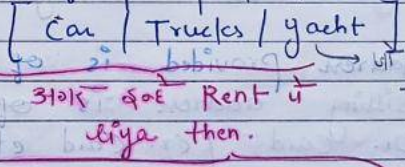 [ Car / Trucks / yacht ]
अगर इन्हे Rent पे
liya then.